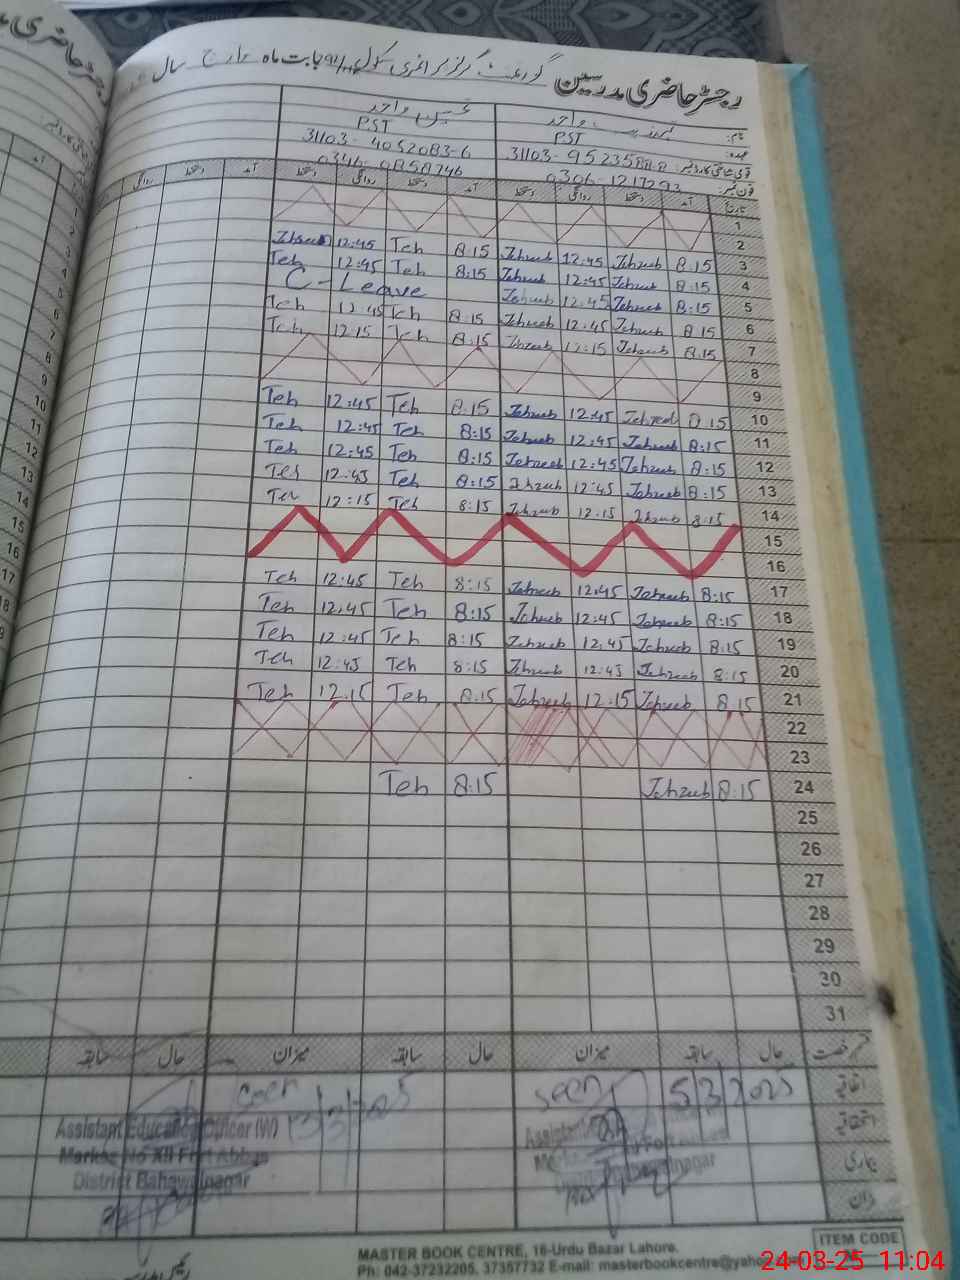 رجسٹر حاضری مدرسین گورنمنٹ گرلز پرائمری سکول بابت ماہ مارچ سال
نام: واحد
عہدہ: PST PST
قومی شناختی کارڈ نمبر: 31103-9523588-8 31103-4052083-6
فون نمبر: 0306-1217293 0346-0858746
تاریخ آمد دستخط روانگی دستخط آمد دستخط روانگی دستخط آمد دستخط روانگی
1
2
3 8:15 Jehzeb 12:45 Jehzeb 8:15 Teh 12:45
4 8:15 Jehzeb 12:45 Jehzeb 8:15 Teh 12:45 Teh
5 8:15 Jehzeb 12:45 Jehzeb C-Leave
6 8:15 Jehzeb 12:45 Jehzeb 8:15 Teh 12:45 Teh
7 8:15 Jehzeb 12:15 Jehzeb 8:15 Teh 12:15 Teh
8
9
10 8:15 Jehzeb 12:45 Jehzeb 8:15 Teh 12:45 Teh
11 8:15 Jehzeb 12:45 Jehzeb 8:15 Teh 12:45 Teh
12 8:15 Jehzeb 12:45 Jehzeb 8:15 Teh 12:45 Teh
13 8:15 Jehzeb 12:45 Jehzeb 8:15 Teh 12:45 Teh
14 8:15 Jehzeb 12:15 Jehzeb 8:15 Teh 12:15 Teh
15
16
17 8:15 Jehzeb 12:45 Jehzeb 8:15 Teh 12:45 Teh
18 8:15 Jehzeb 12:45 Jehzeb 8:15 Teh 12:45 Teh
19 8:15 Jehzeb 12:45 Jehzeb 8:15 Teh 12:45 Teh
20 8:15 Jehzeb 12:45 Jehzeb 8:15 Teh 12:45 Teh
21 8:15 Jehzeb 12:15 Jehzeb 8:15 Teh 12:15 Teh
22
23
24 8:15 Jehzeb 8:15 Teh
25
26
27
28
29
30
31
قسم رخصت حال سابقہ میزان حال سابقہ میزان حال سابقہ
اتفاقیہ
استحقاقیہ
بیماری
seen 5/3/2025
seen 13/3/2025
Assistant Education Officer (W)
Markaz No XII Fort Abbas
District Bahawalnagar
ITEM CODE
MASTER BOOK CENTRE, 16-Urdu Bazar Lahore.
Ph: 042-37232205, 37357732 E-mail: masterbookcentre@yahoo.com
24-03-25 11:04